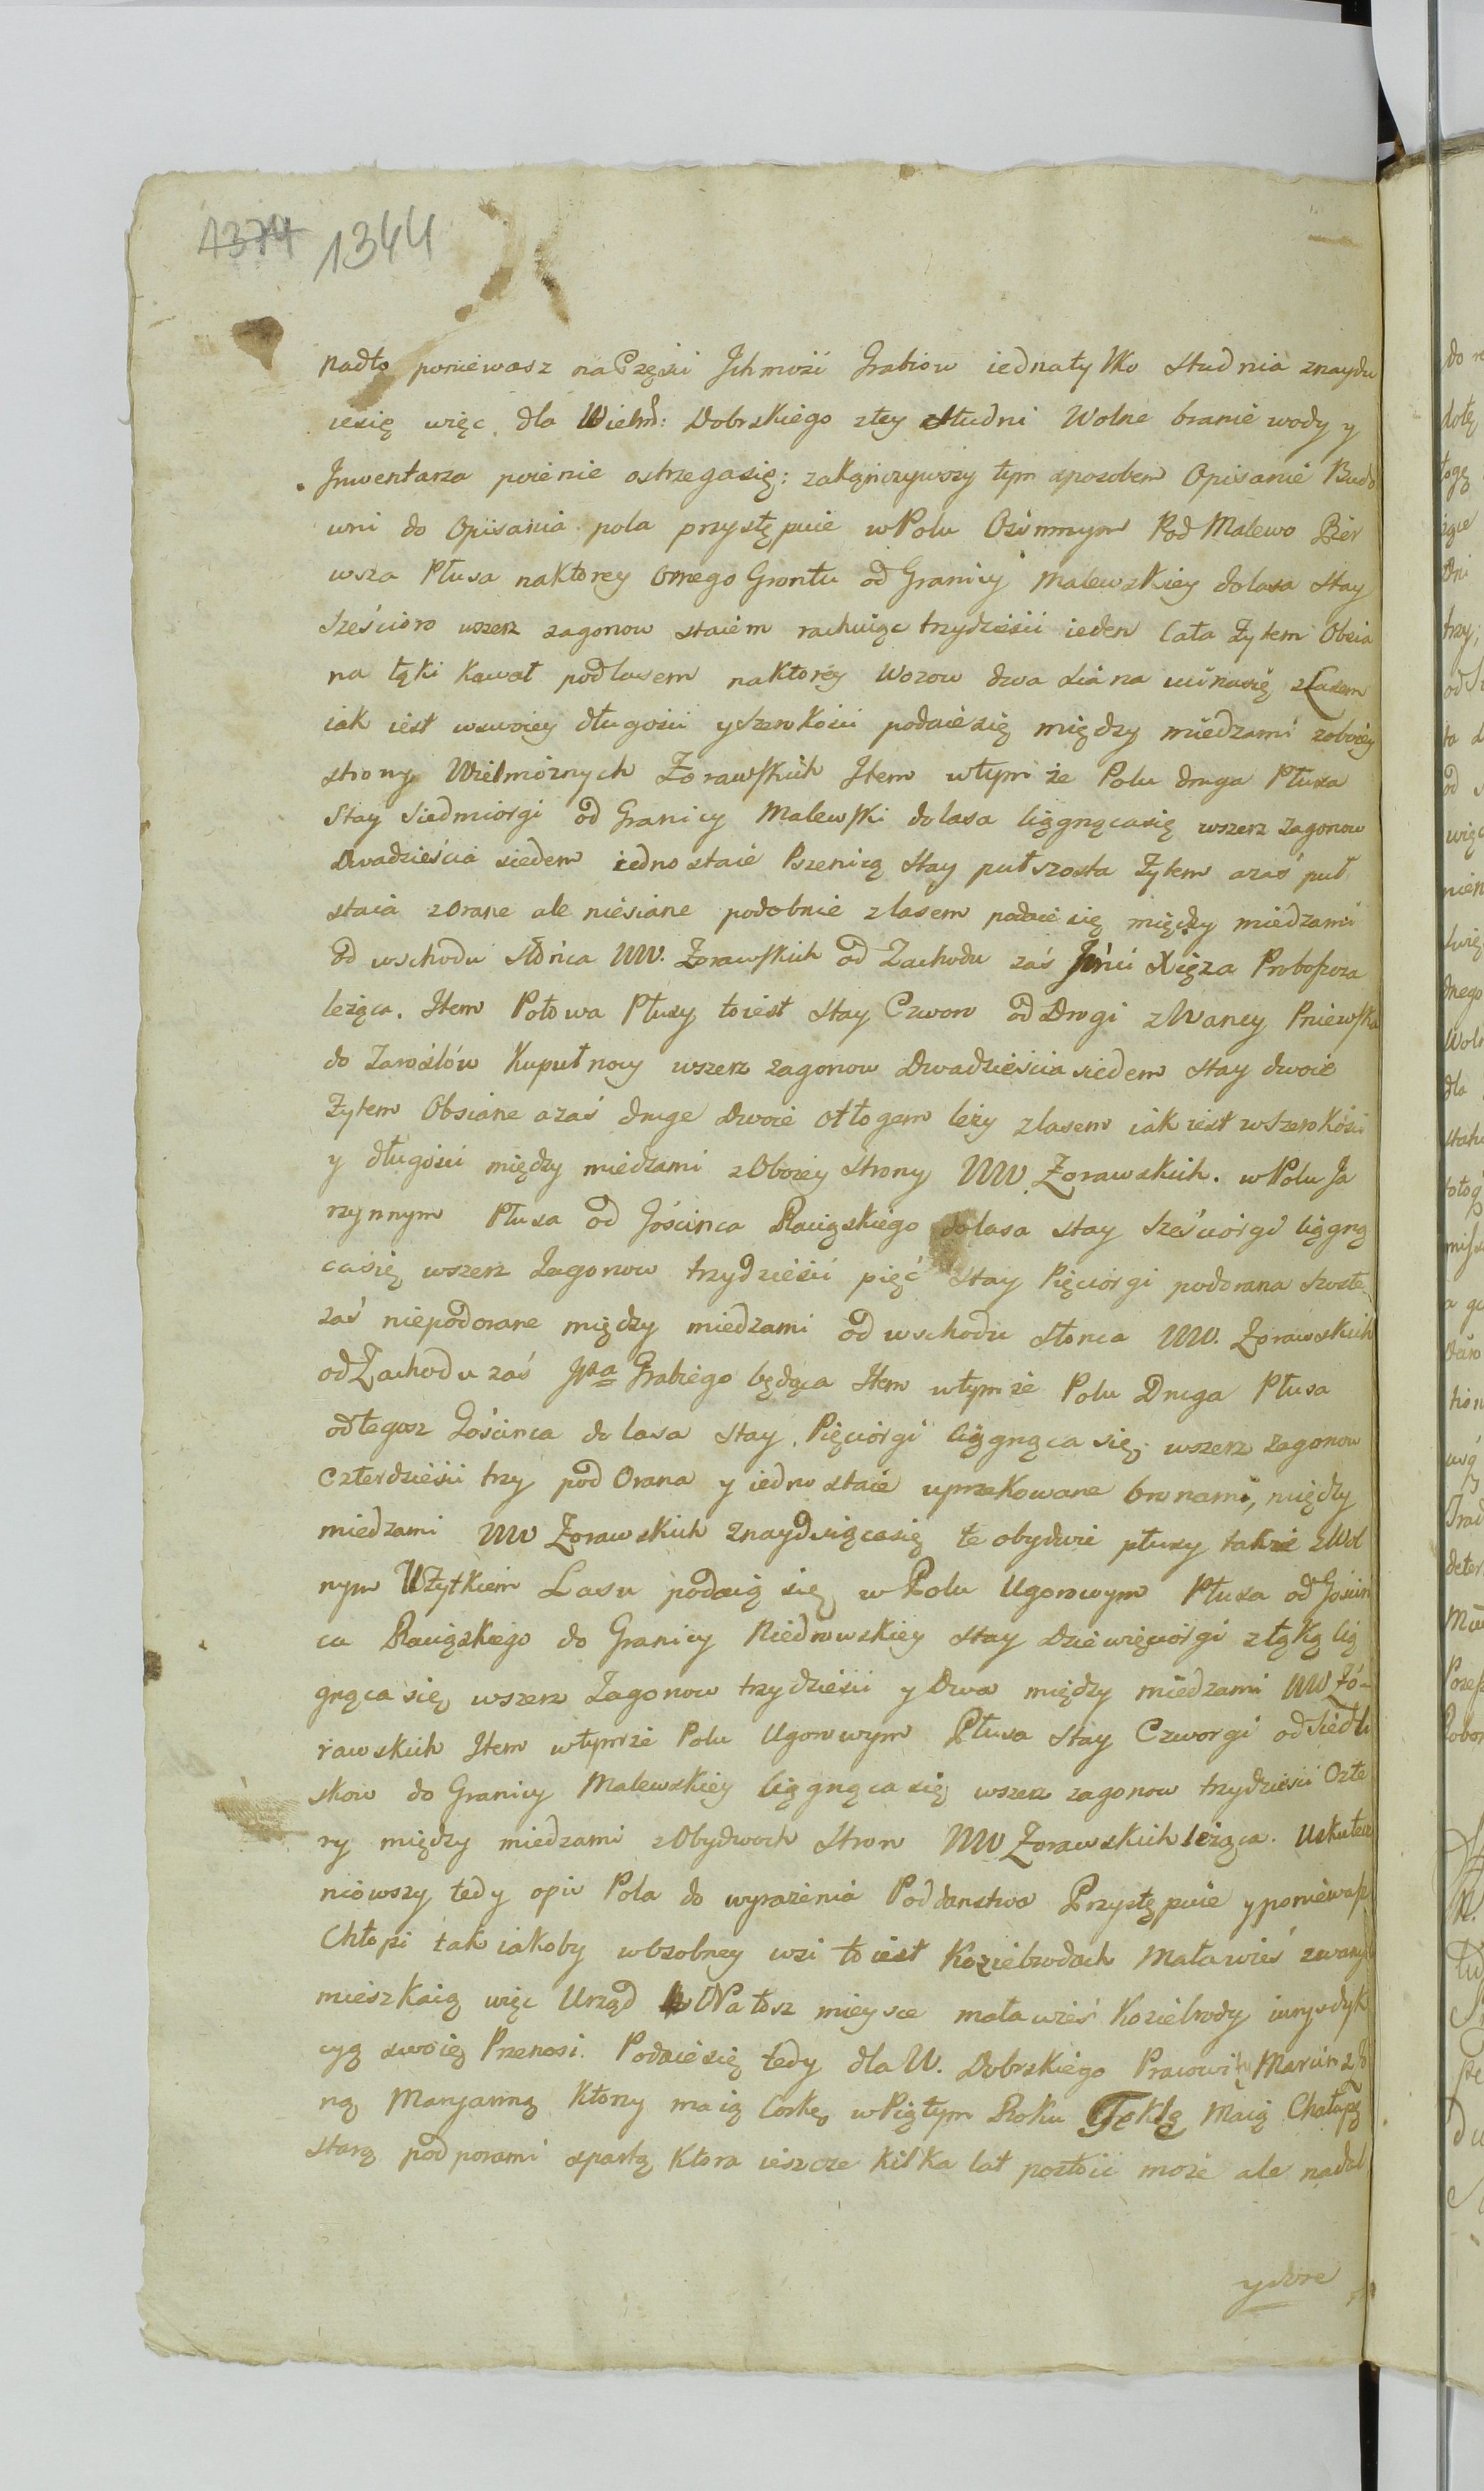 1374 1344
nadto poniewasz na Częsci Jchmość Grabiow iedna tylko studnia znaydu
iesię więc dla Wielm: Dobrskiego z tey studni Wolne branie wody y
Jnwentarza poienie ostrzegasię: zakonczywszy tym sposobem Opisanie Budo
wni do Opisania pola przystępuie w Polu Ozimnym Pod Malewo Pier
wsza Płusa na ktorey Ornego Grontu od Granicy Malewskiey do lasa Stay
Sześcioro wszerz zagonow staiem rachuiąc trzydziesci ieden Cała Żytem Obsia
na łąki kawał pod lasem na ktorey Wozow dwa siana uinasię z Lasem
iak iest w swoiey długości y szerokości podaiesię między miedzami z oboiey
strony Wielmożnych Zorawskich Jtem w tymże Polu druga Płusa
Stay Siedmiorgi od Granicy Malewski do lasa liągnącasię wszerz Zagonow
Dwadzieścia siedem iedno staie Pszenicą Stay pułszosta Żytem azaś puł
staia zorane ale niesiane podobnie z lasem podaie się między miedzami
Od wschodu Słońca WW. Zorawskich od Zachodu zaś Jmci Xięza Proboszcza
leżąca. Jtem Połowa Płusy to iest Stay Czworo od Drogi zwaney Pniewska
do Zaroślów Ku pułnocy wszerz zagonow Dwadzieścia siedem Stay dwoie
Żytem Obsiane azaś druge Dwoie odłogem leży z lasem iak iest w szerokości
y długości między miedzami z Oboiey Strony WW Zorawskich. w Polu Ja
rzynnym Płusa od Gościnca Raciązskiego do lasa stay sześciorgi liągną
casię wszerz Zagonow trzydzieści pięć Stay Pięciorgi podorana szoste
zaś niepodorane między miedzami od wschodu Słonca WW. Zorawskich
od Zachodu zaś Jpa Grabiego będąca Jtem w tymże Polu Druga Płusa
od tegosz Gościnca do lasa Stay Pięciorgi liągnąca się wszerz zagonow
Czterdziesci trzy pod Orana y iedno staie uprzekowane bronami, między
miedzami WW Zorawskich Znayduiącasię te obydwie płusy także z Wol
nym Użytkiem Lasu podaią się w Polu Ugorowym Płusa od Gościn
ca Raciązskiego do Granicy Niedrowskiey Stay Dziewięciorgi z łąką lią
gnąca się wszerz Zagonow trzydziesci y Dwa między miedzami WW Żó-
rawskich Jtem w tymże Polu Ugorowym Płusa Stay Czworgi od Siedli
skow do Granicy Malewskiey liągnąca się wszerz zagonow trzydziesci Czte
ry między miedzami z Obydwoch Stron WW Zorawskich leżąca. Uskutecz
niowszy tedy opis Pola do wyrażenia Poddanstwa Przystępuie y poniewasz
Chłopi tak iakoby w osobney wsi to iest Koziebrodach Mała wieś zwanych
mieszkaią więc Urząd Na tosz mieysce mała wieś Koziebrody iurysdyk
cyą swoię Przenosi. Podaiesię tedy dla W. Dobrskiego Pracowity Marcin z Żo
ną Maryanną Ktorzy maią Corkę w Piątym Roku Teklę Maią Chałupę
starą podporami spartą Ktora ieszcze kilka lat postoić może ale nadal
y dre